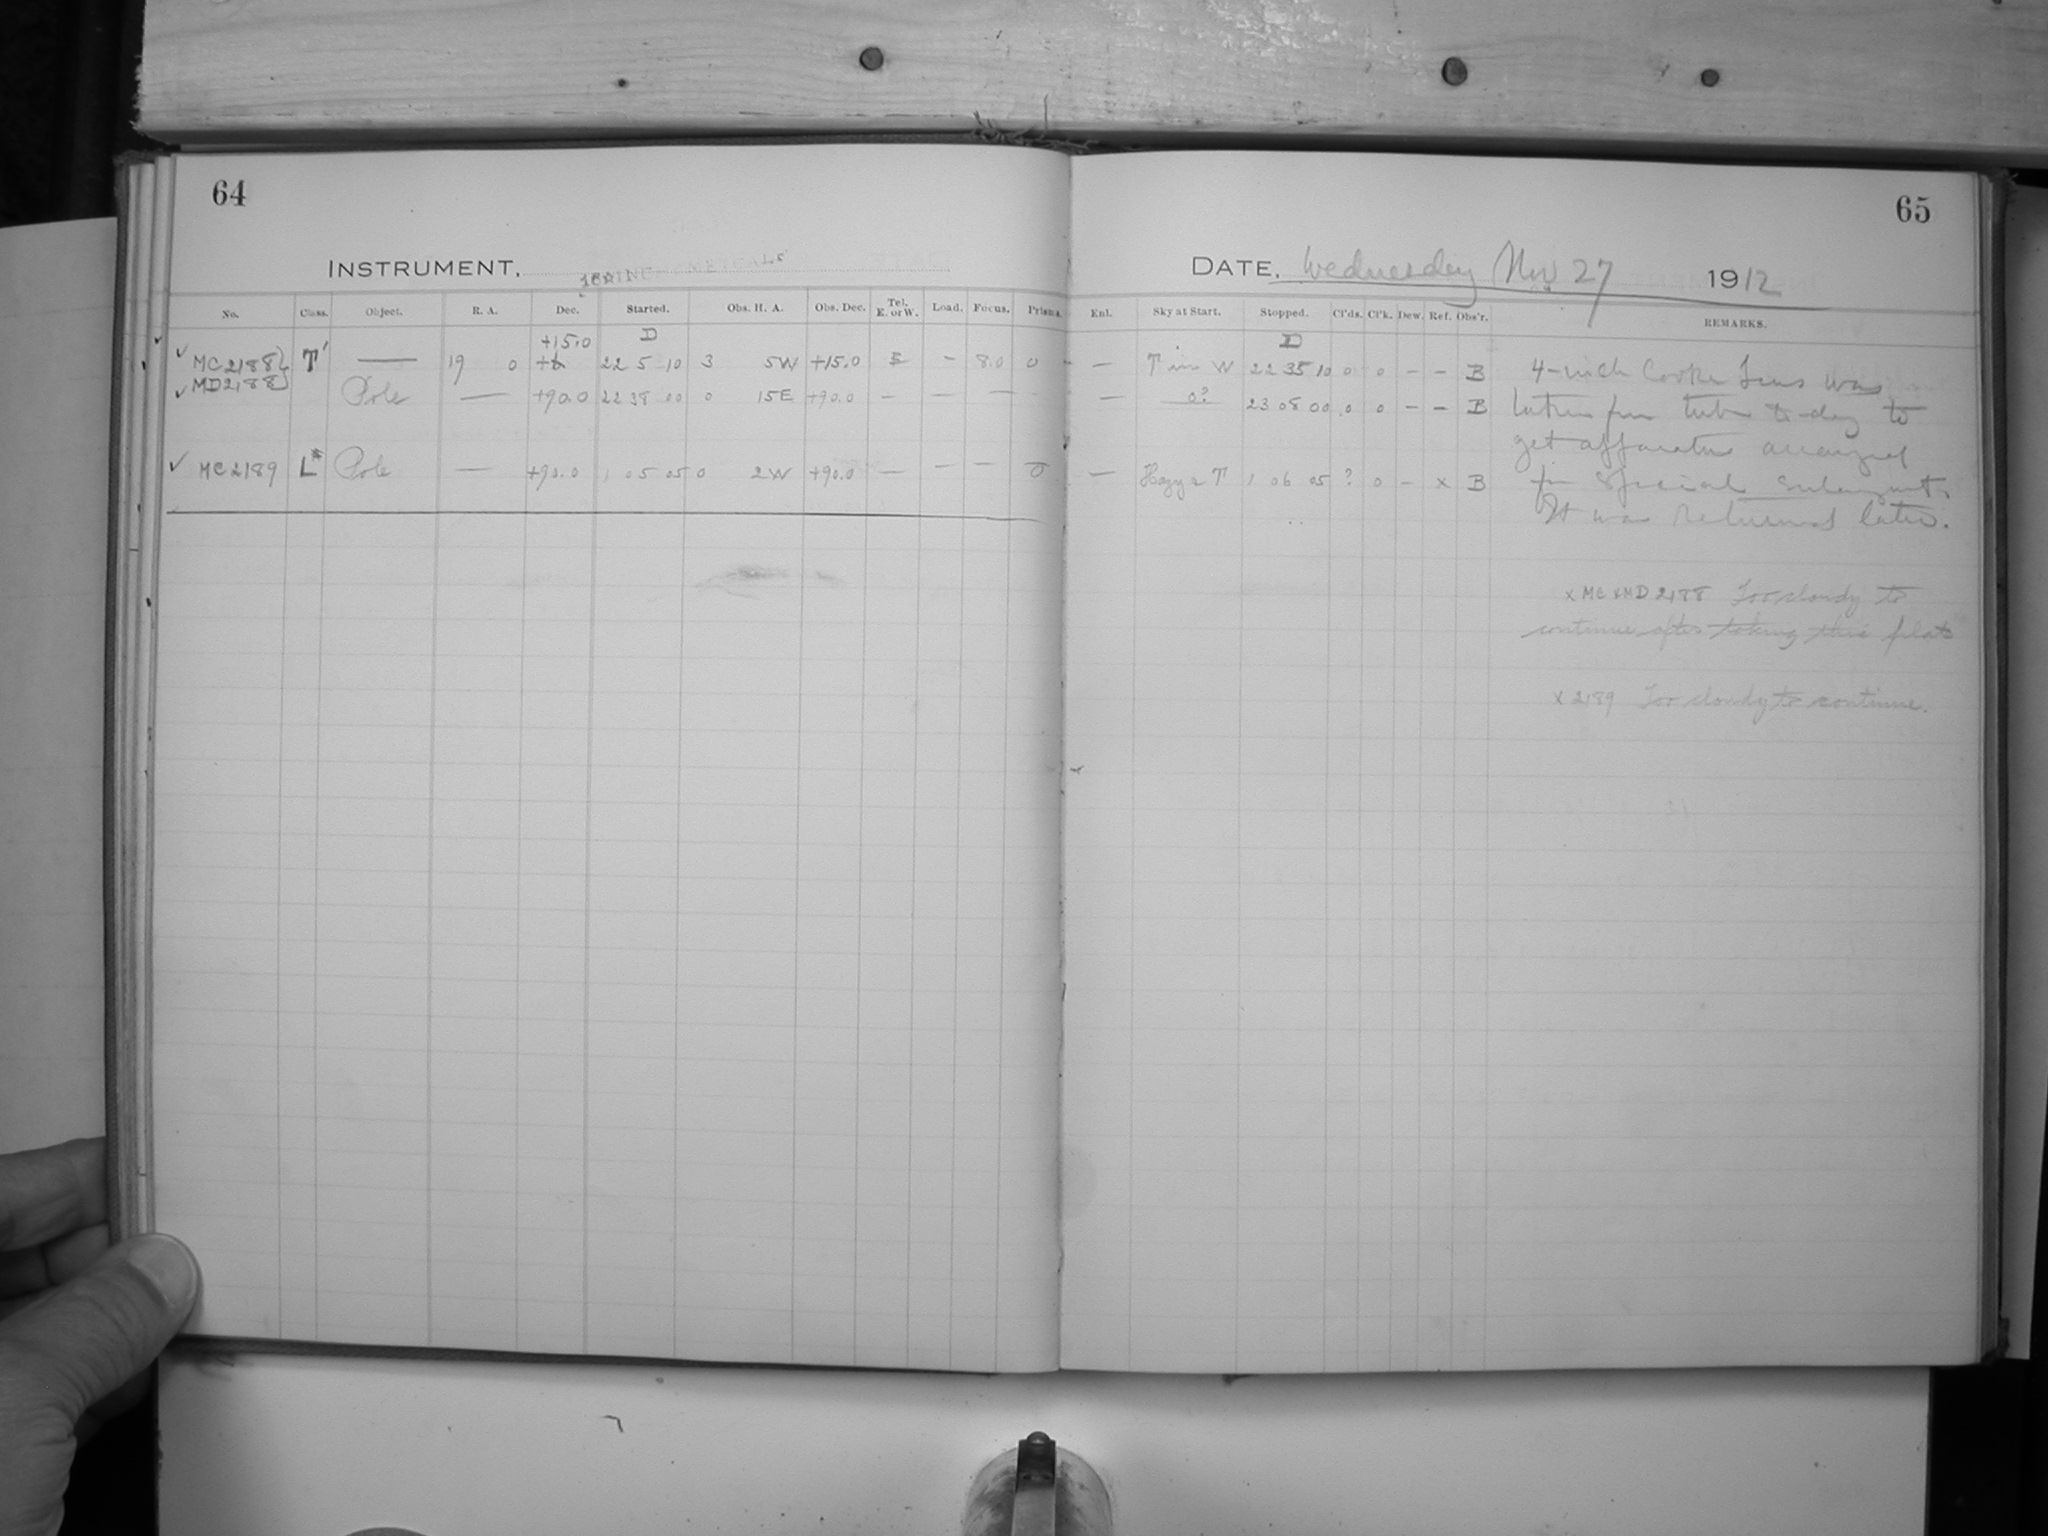 64
INSTRUMENT, 16 INCH METCALF
No. Class. Object. R. A. Dec. Started. Obs. H. A. Obs. Dec. Tel. E. or W. Load. Focus. Prisms.
+15.0 D
MC2188 T' — 19 0 22 5 10 3 5W +15.0 E - 8.0 0
MD2188
Pole — +90.0 22 38 00 0 15E +90.0 — — —
MC2189 L* Pole — +90.0 1 05 05 0 2W +90.0 — — — 0
65
DATE, Wednesday Nov 27 1912
Enl. Sky at Start. Stopped. Cl'ds. Cl'k. Dew. Ref. Obs'r. REMARKS.
D
— T in W 22 35 10 0 0 — — B 4-inch Cooke Lens was
— 0? 23 08 00 0 0 — — B taken from tube to-day to
get apparatus arranged
— Hazy & T 1 06 05 ? 0 - x B for special
It was returned later.
x MC & MD 2188 Too cloudy to
continue after taking this plate
x 2189 Too cloudy to continue.